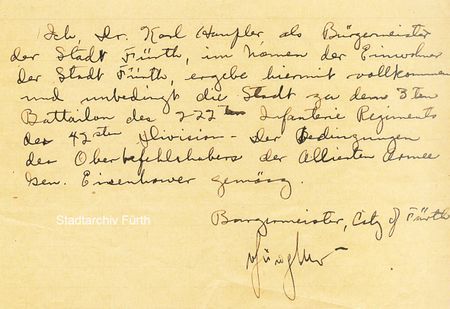 Ich, Dr. Karl Häupler als Bürgermeister
der Stadt Fürth, im Namen der Einwohner
der Stadt Fürth, ergebe hiermit vollkommen
und unbedingt die Stadt zu dem 3ten
Battailon des 222 Infanterie Regiments
des 42sten Division - Der Bedingungen
des Oberbefehlshabers der Allierten Armee
Gen. Eisenhower gemäss.
Burgermeister, City of Fürth
Stadtarchiv Fürth